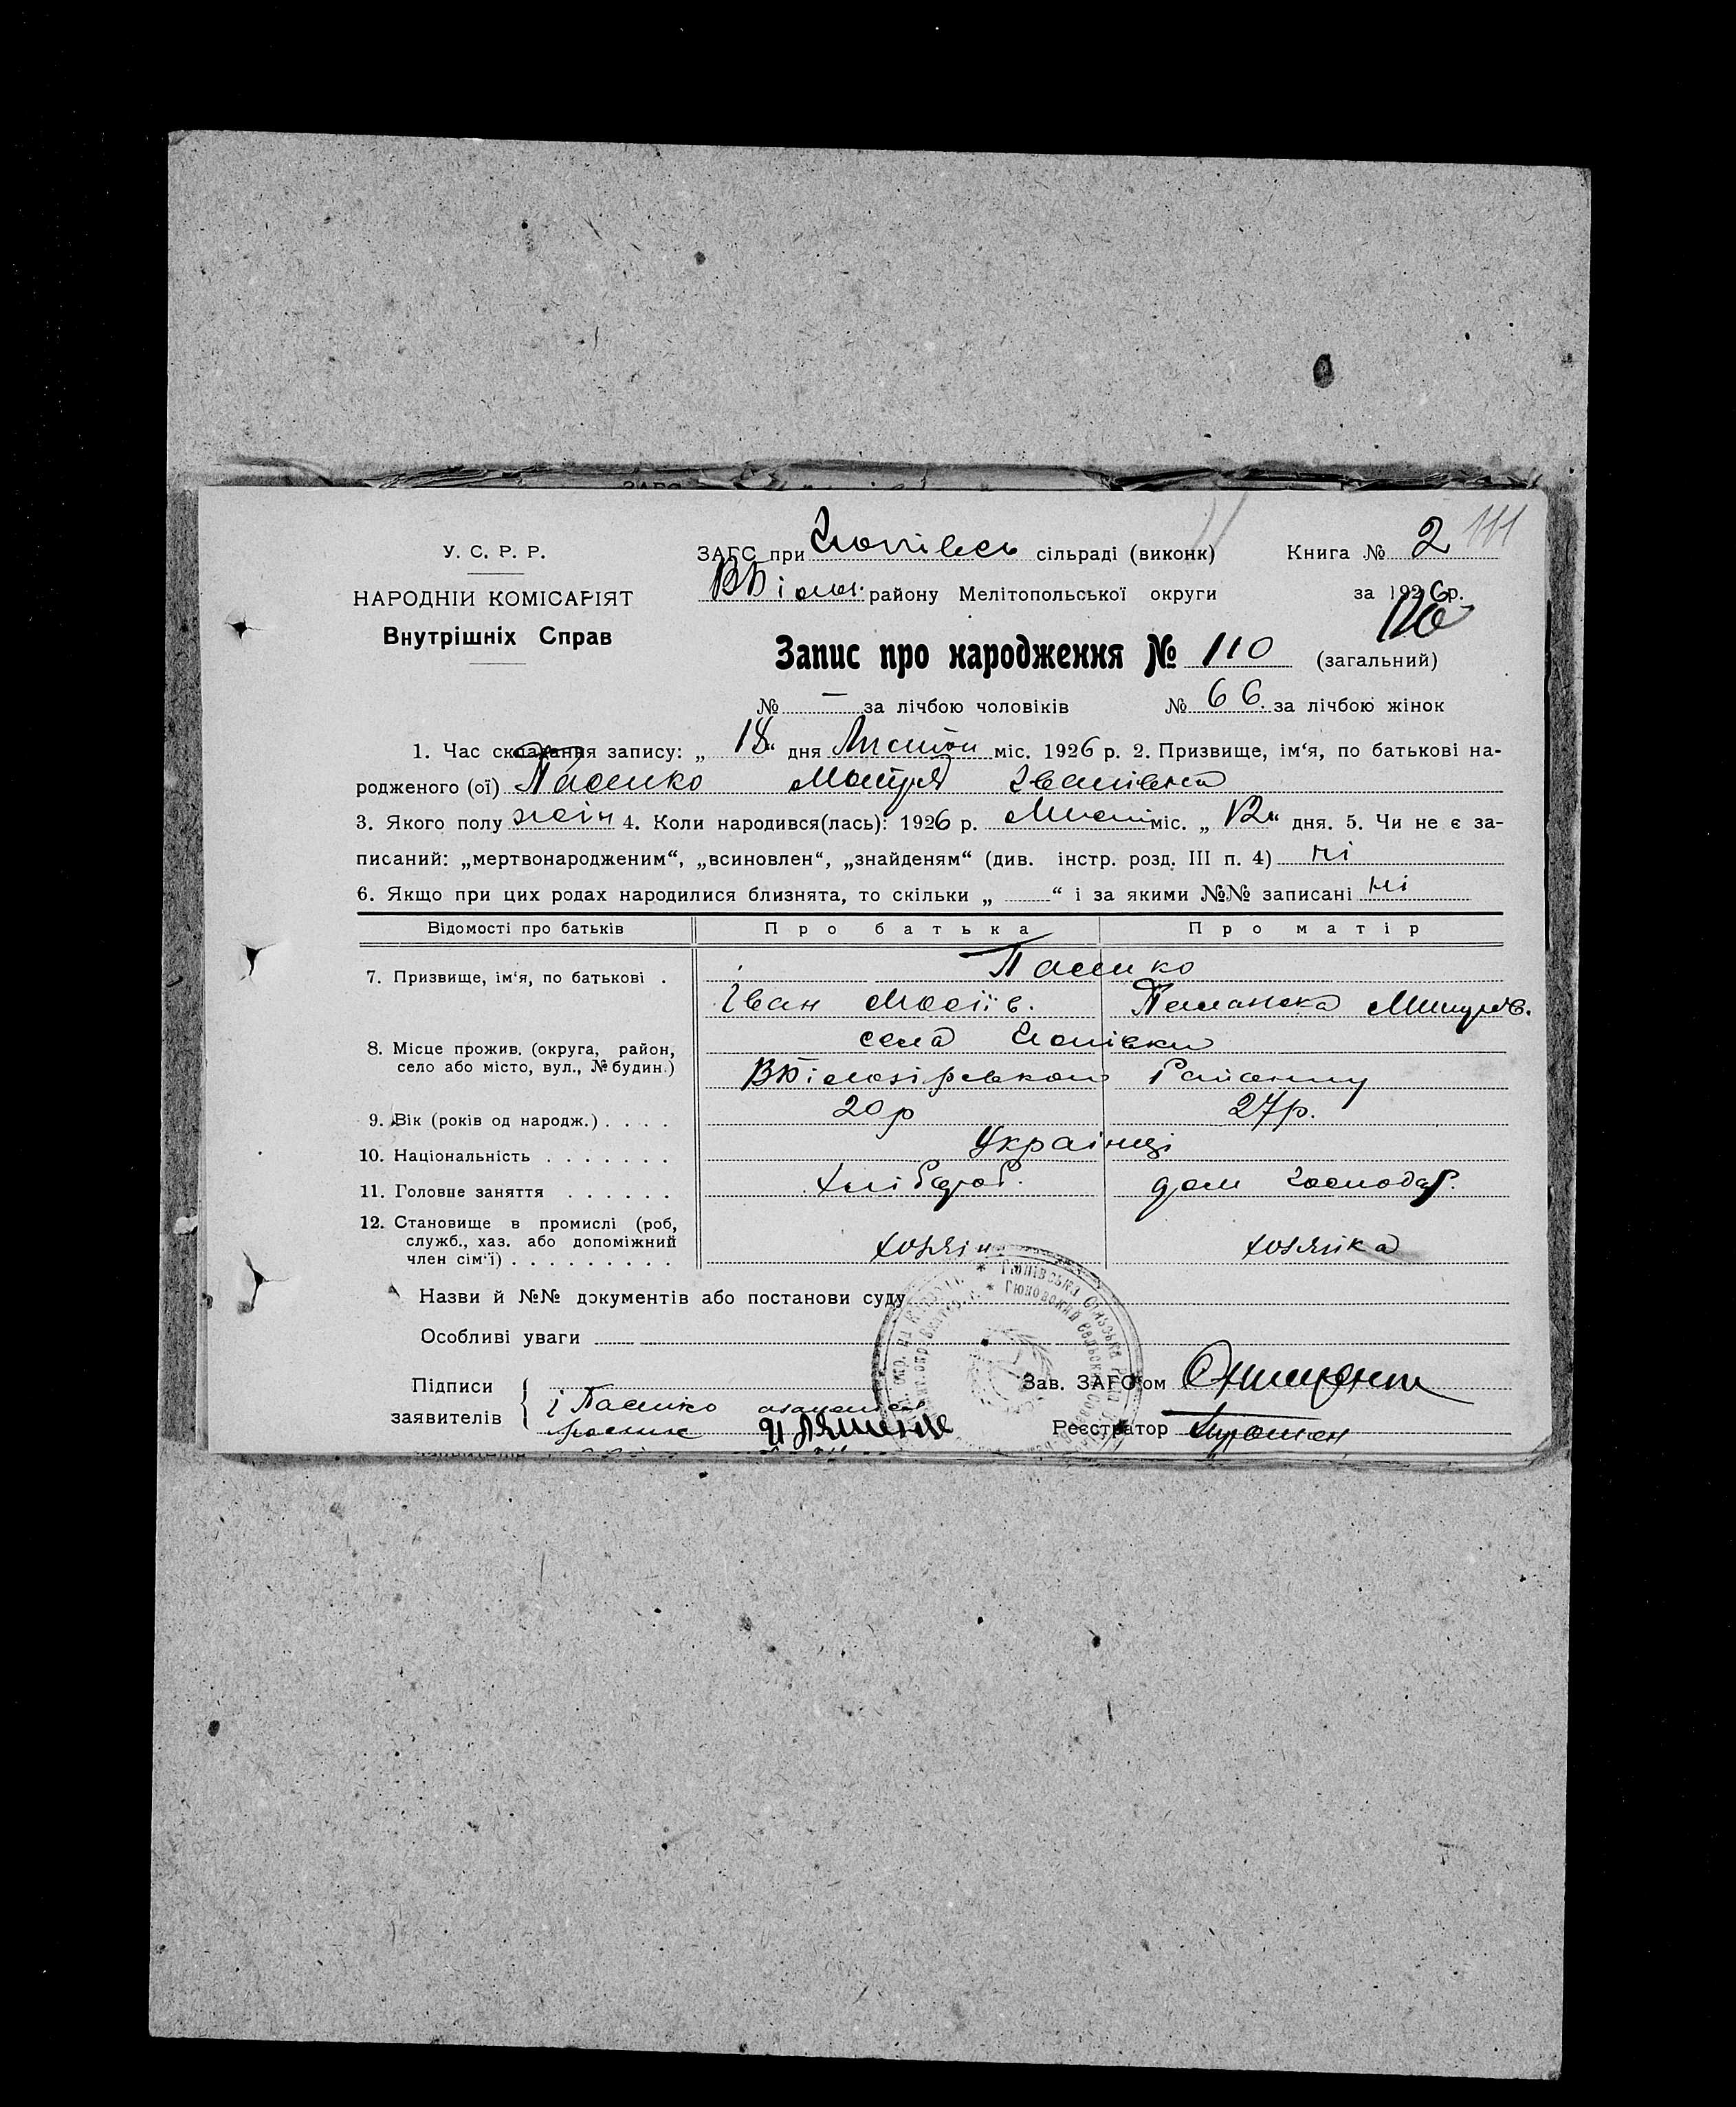 111
У. С. Р. Р.
НАРОДНІЙ КОМІСАРІЯТ
Внутрішніх Справ
ЗАГС при сільраді (виконк) Книга № 2
ВБілоз. району Мелітопольської округи за 1926 р.
110
Запис про народження № 110 (загальний)
№ — за лічбою чоловіків № 66. за лічбою жінок
1. Час складання запису: „ 18 “ дня міс. 1926 р. 2. Призвище, ім‘я, по батькові на-
родженого (ої) Іванівна
3. Якого полу жін 4. Коли народився(лась): 1926 р. міс. „ 12 “ дня. 5. Чи не є за-
писаний: „мертвонародженим“, „всиновлен“, „знайденям“ (див. інстр. розд. III п. 4) ні
6. Якщо при цих родах народилися близнята, то скільки „ “ і за якими №№ записані ні
Відомості про батьків Про батька Про матір
7. Призвище, ім‘я, по батькові .
Іван Мосіїв.
8. Місце прожив. (округа, район,
село або місто, вул., № будин.)
села
ВБілозірськом Району
9. Вік (років од народж.) . . . . 20р 27р.
10. Національність . . . . . . . Украінці
11. Головне заняття . . . . . . Хлібороб. дом господар.
12. Становище в промислі (роб,
служб., хаз. або допоміжний
член сім‘ї) . . . . . . . . . хозяін хозяйка
Назви й №№ документів або постанови суду
Особливі уваги
Підписи
заявителів
Зав. ЗАГС‘ом
Реєстратор